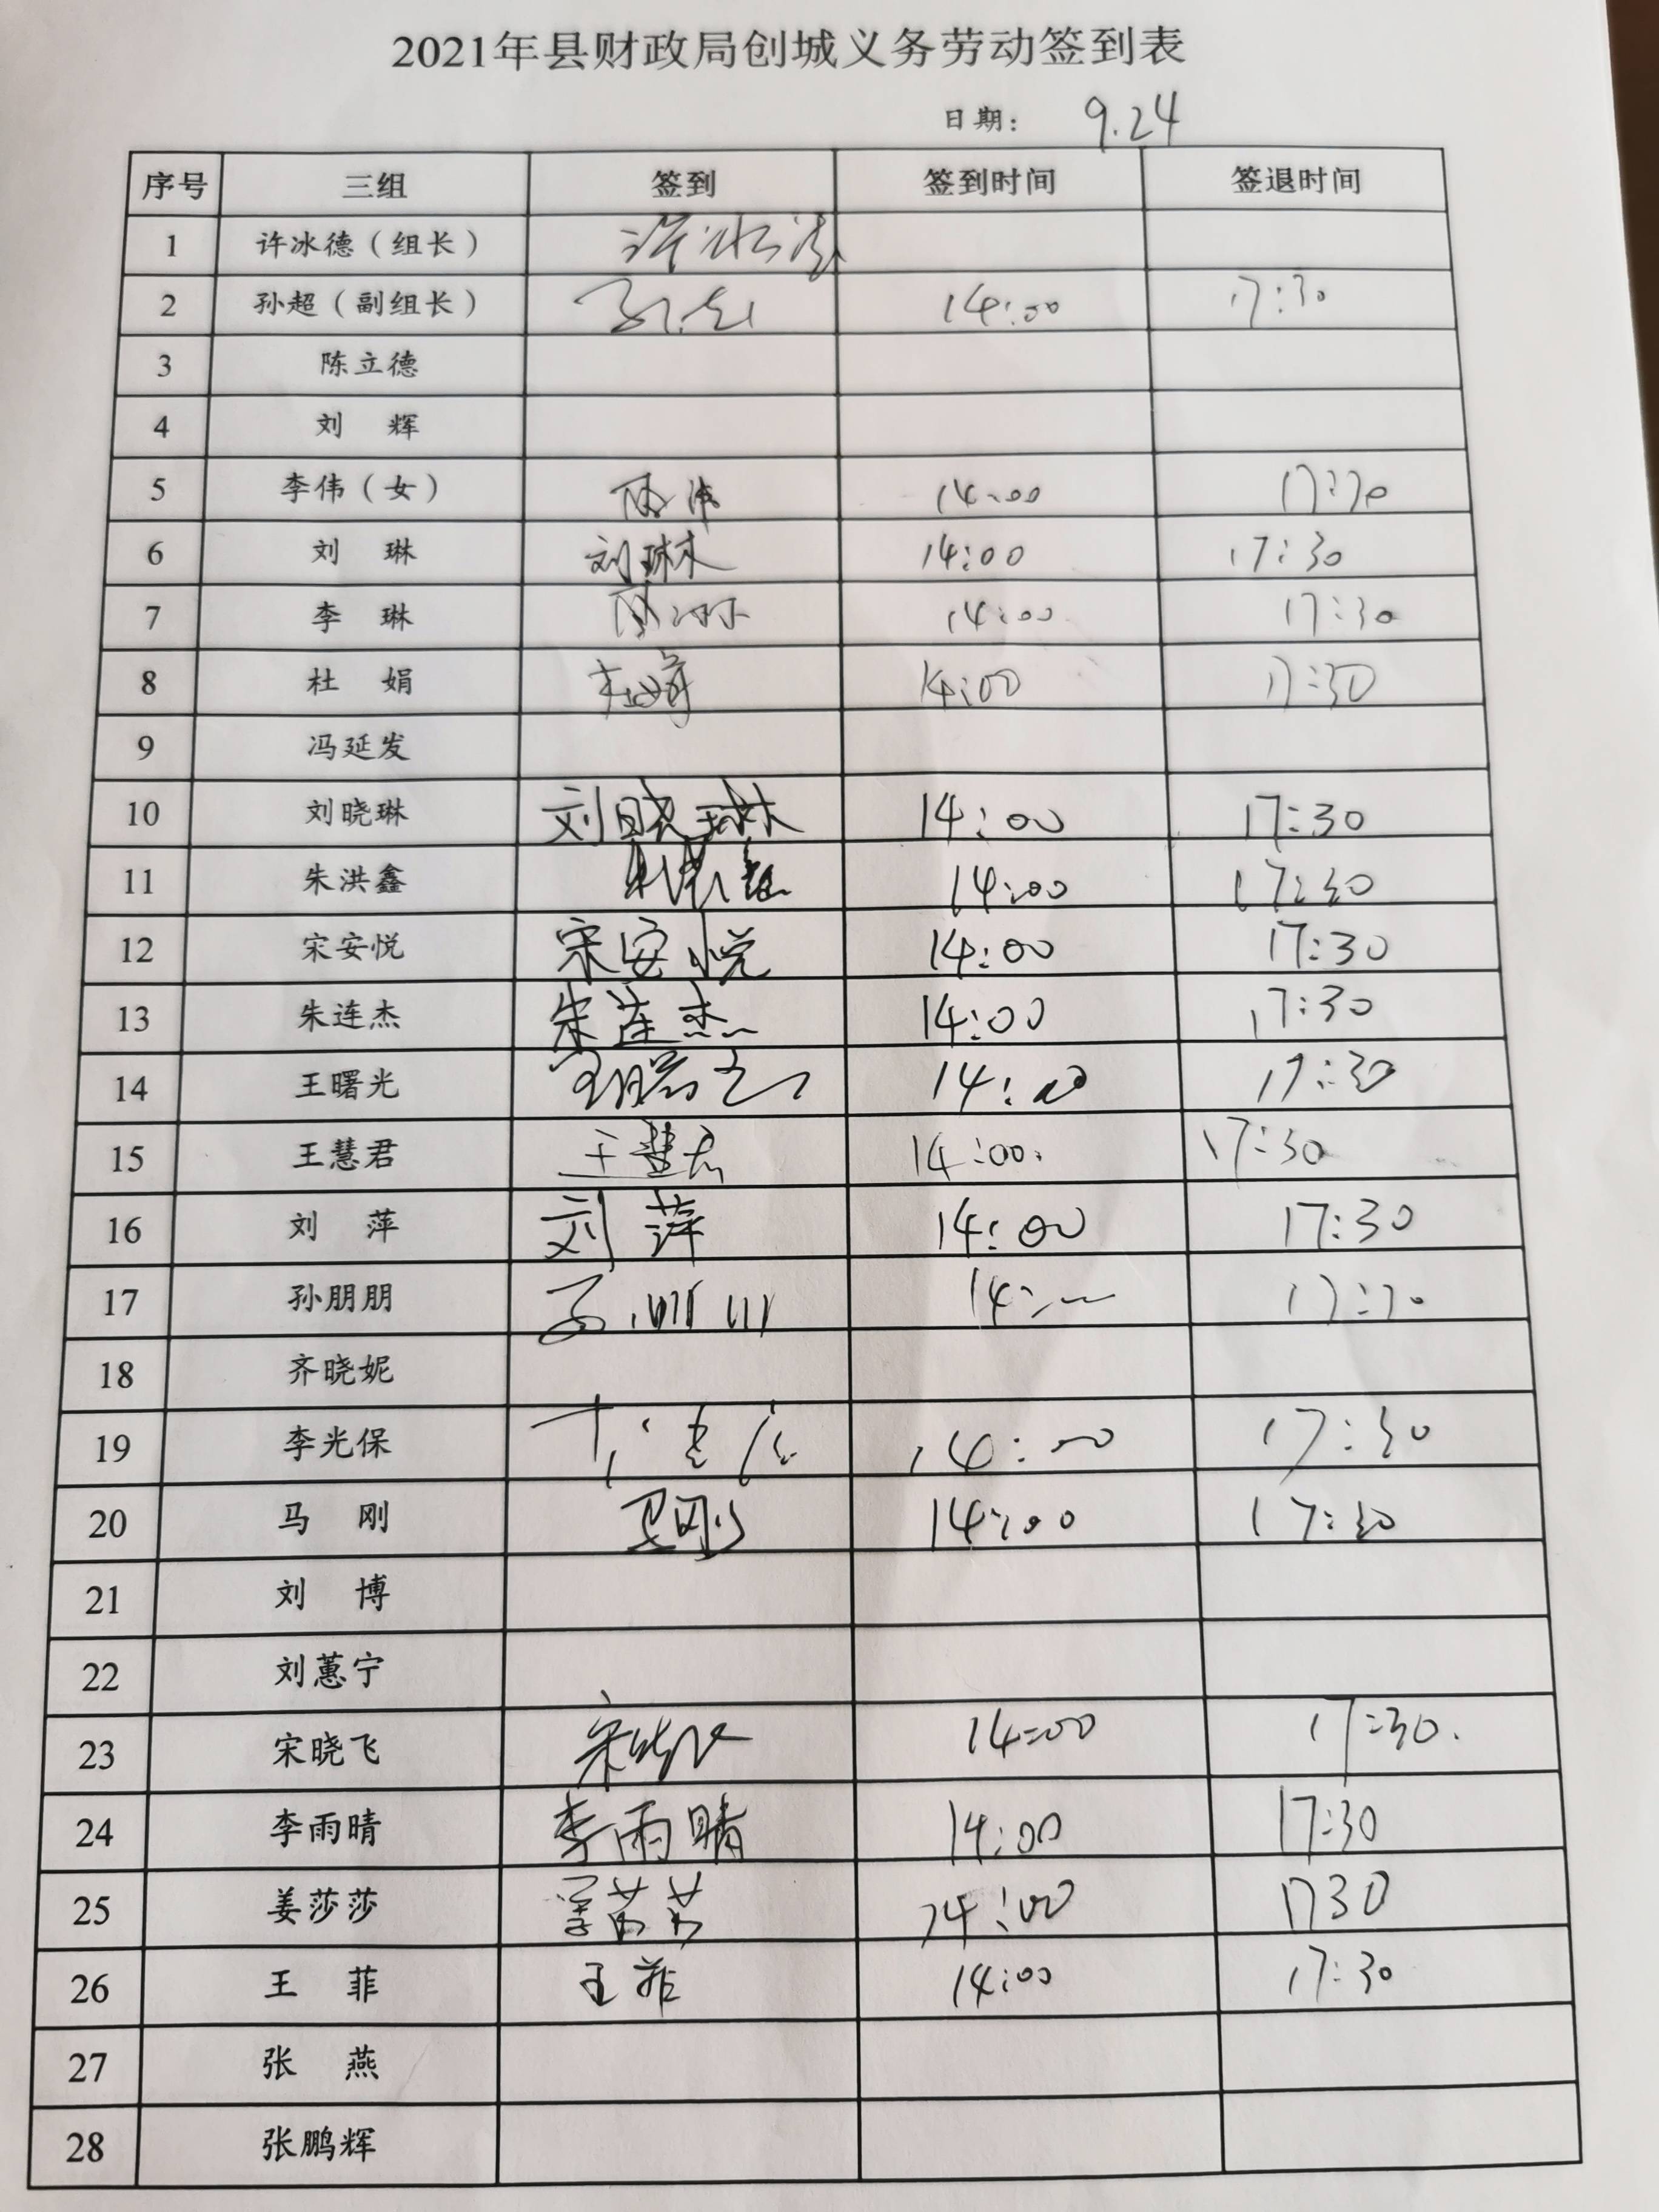 2021年县财政局创城义务劳动签到表
日期: 9.24
序号 三组 签到 签到时间 签退时间
1 许冰德（组长） 许冰德
2 孙超（副组长） 孙超 14:00 17:30
3 陈立德
4 刘 辉
5 李伟（女） 李伟 14:00 17:30
6 刘 琳 刘琳 14:00 17:30
7 李 琳 李琳 14:00 17:30
8 杜 娟 杜娟 14:00 17:30
9 冯延发
10 刘晓琳 刘晓琳 14:00 17:30
11 朱洪鑫 朱洪鑫 14:00 17:30
12 宋安悦 宋安悦 14:00 17:30
13 朱连杰 朱连杰 14:00 17:30
14 王曙光 王曙光 14:00 17:30
15 王慧君 王慧君 14:00. 17:30
16 刘 萍 刘萍 14:00 17:30
17 孙朋朋 孙朋朋 14:00 17:30
18 齐晓妮
19 李光保 李光保 14:00 17:30
20 马 刚 马刚 14:00 17:30
21 刘 博
22 刘蕙宁
23 宋晓飞 宋晓飞 14:00 17:30.
24 李雨晴 李雨晴 14:00 17:30
25 姜莎莎 姜莎莎 14:00 1730
26 王 菲 王菲 14:00 17:30
27 张 燕
28 张鹏辉